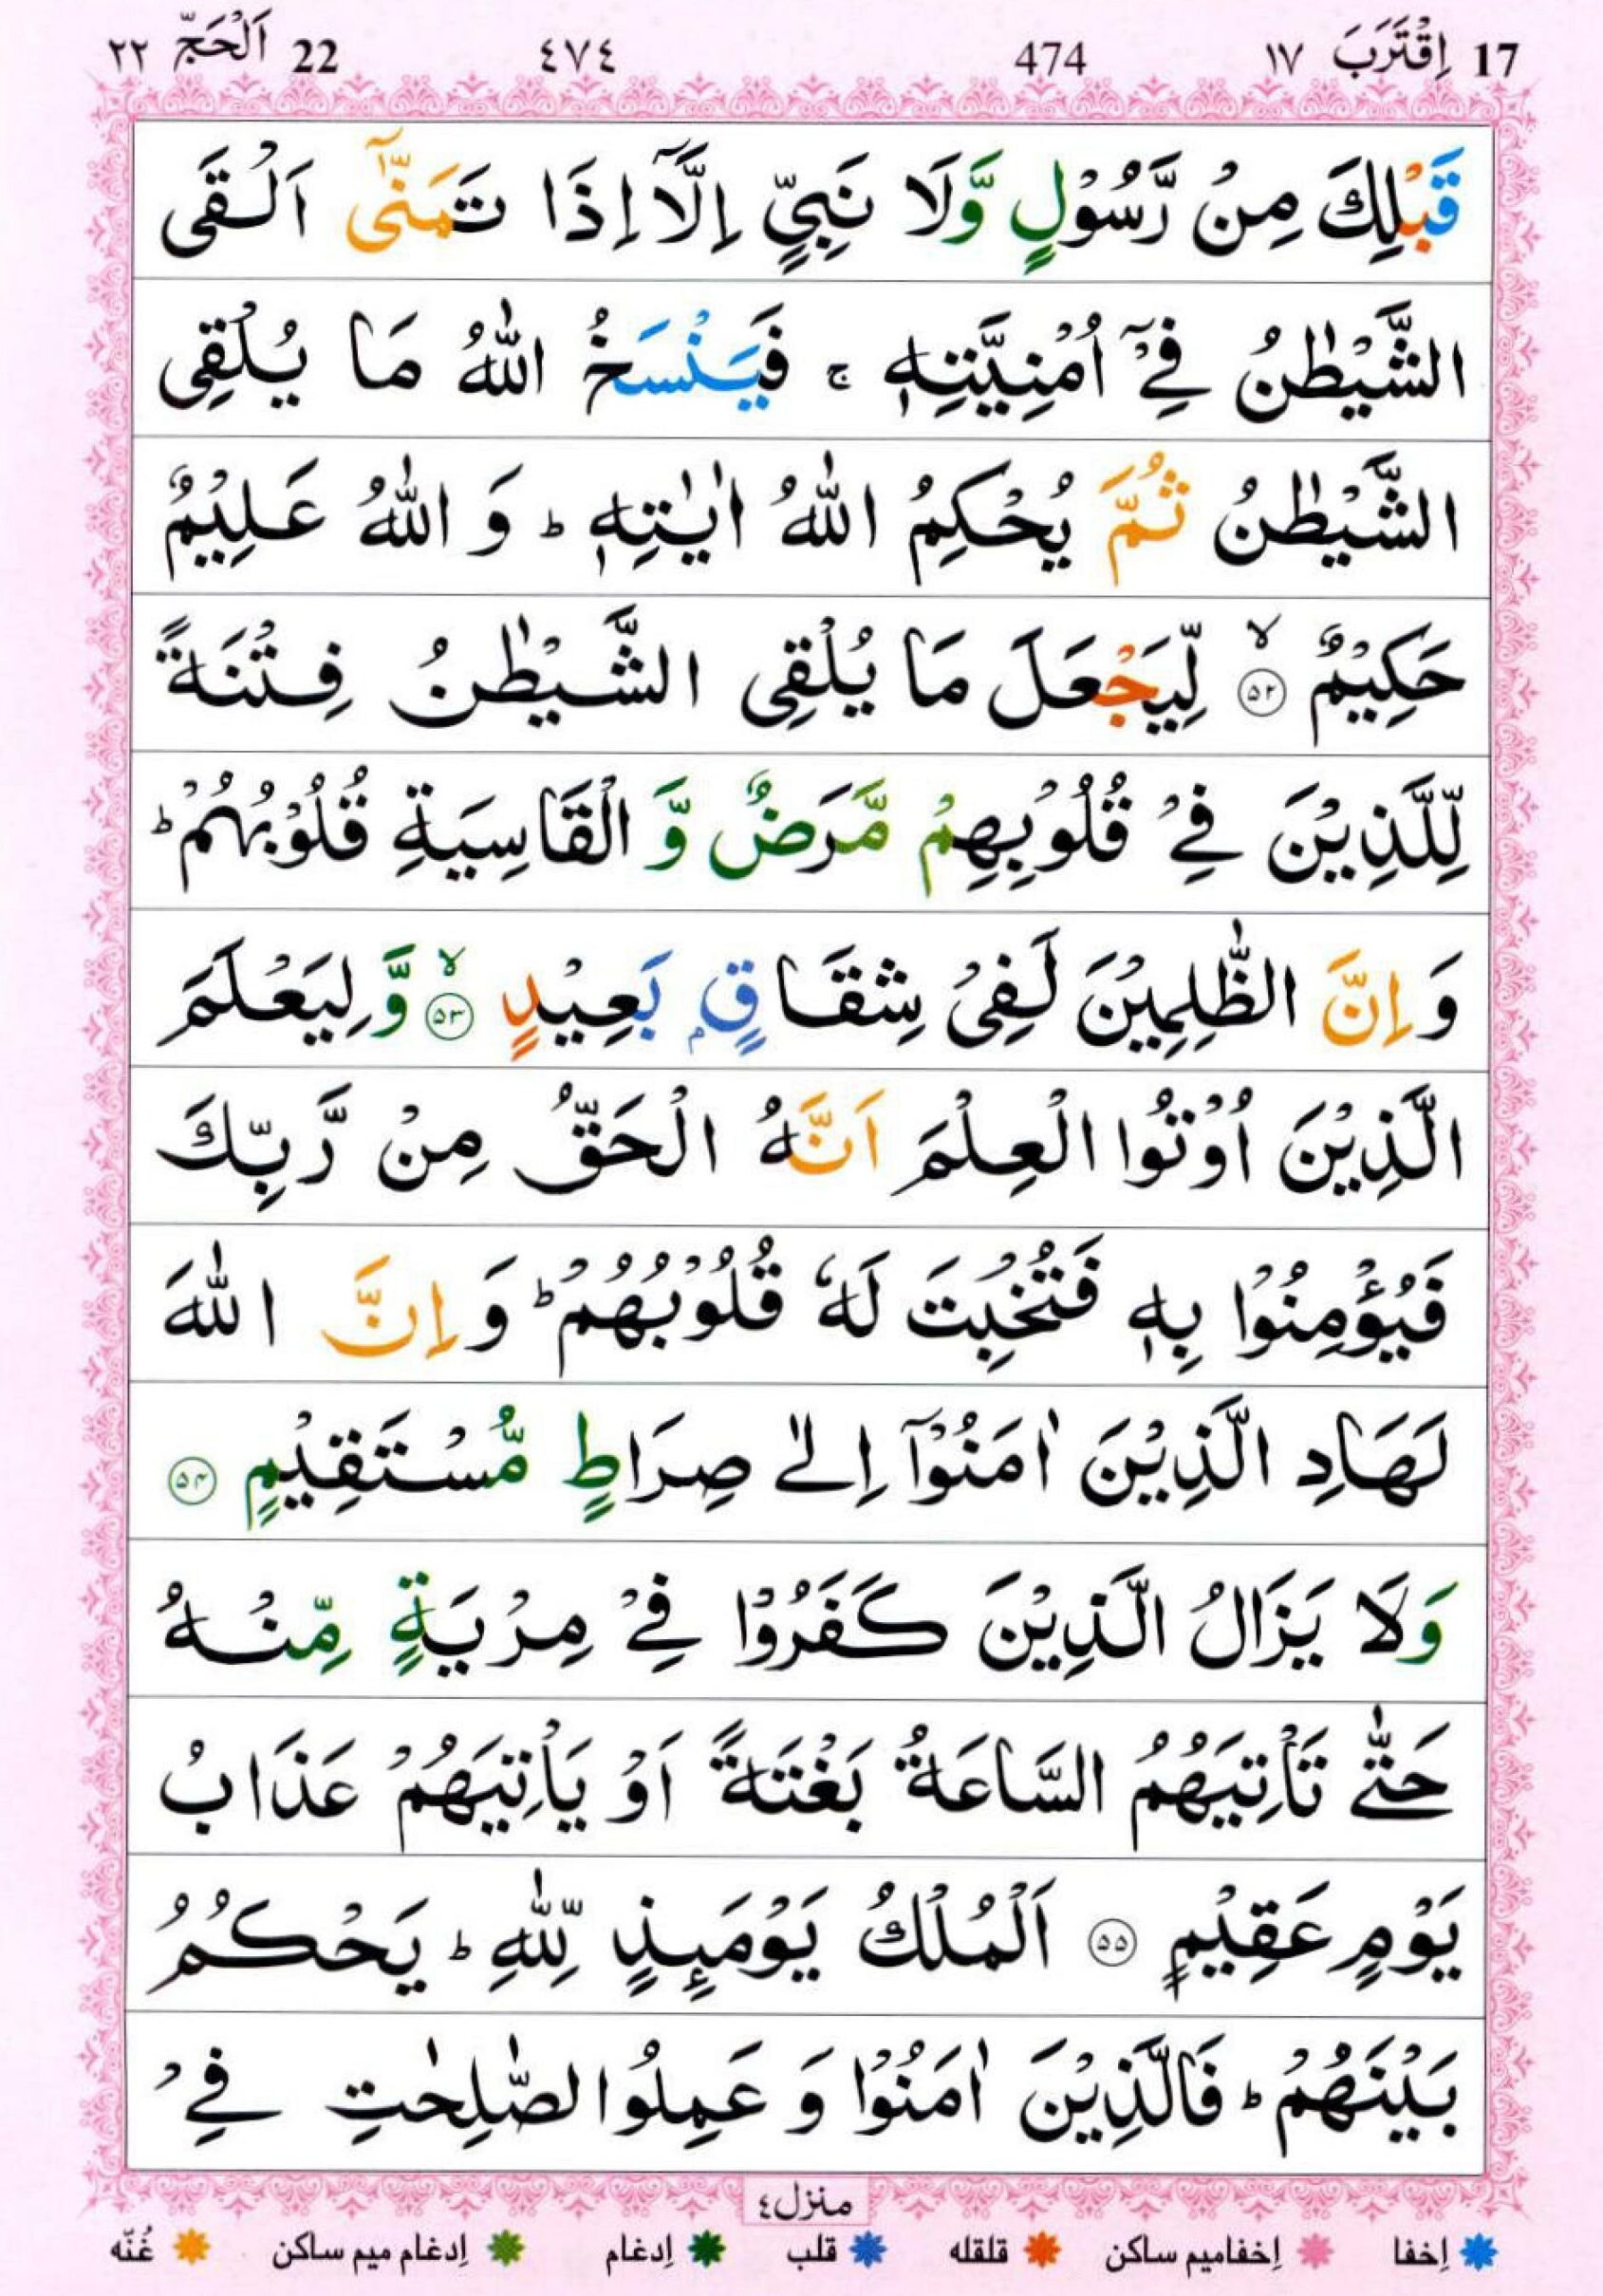 17 اِقْتَرَبَ ١٧ 474 ٤٧٤ 22 اَلْحَجّ ٢٢
قَبْلِكَ مِنْ رَّسُوْلٍ وَّلَا نَبِيٍّ اِلَّاۤ اِذَا تَمَنّٰۤى اَلْقَى
الشَّيْطٰنُ فِيْۤ اُمْنِيَّتِهٖ ۚ فَيَنْسَخُ اللّٰهُ مَا يُلْقِى
الشَّيْطٰنُ ثُمَّ يُحْكِمُ اللّٰهُ اٰيٰتِهٖ ؕ وَ اللّٰهُ عَلِيْمٌ
حَكِيْمٌ ۙ‏﴿۵۲﴾ لِّيَجْعَلَ مَا يُلْقِى الشَّيْطٰنُ فِتْنَةً
لِّلَّذِيْنَ فِيْ قُلُوْبِهِمْ مَّرَضٌ وَّ الْقَاسِيَةِ قُلُوْبُهُمْ ؕ
وَ اِنَّ الظّٰلِمِيْنَ لَفِيْ شِقَاقٍۭ بَعِيْدٍ ۙ﴿۵۳﴾ وَّ لِيَعْلَمَ
الَّذِيْنَ اُوْتُوا الْعِلْمَ اَنَّهُ الْحَقُّ مِنْ رَّبِّكَ
فَيُؤْمِنُوْا بِهٖ فَتُخْبِتَ لَهٗ قُلُوْبُهُمْ ؕ وَ اِنَّ اللّٰهَ
لَهَادِ الَّذِيْنَ اٰمَنُوْۤا اِلٰى صِرَاطٍ مُّسْتَقِيْمٍ ﴿۵۴﴾
وَلَا يَزَالُ الَّذِيْنَ كَفَرُوْا فِيْ مِرْيَةٍ مِّنْهُ
حَتّٰى تَاْتِيَهُمُ السَّاعَةُ بَغْتَةً اَوْ يَاْتِيَهُمْ عَذَابُ
يَوْمٍ عَقِيْمٍ ﴿۵۵﴾ اَلْمُلْكُ يَوْمَىِٕذٍ لِّلّٰهِ ؕ يَحْكُمُ
بَيْنَهُمْ ؕ فَالَّذِيْنَ اٰمَنُوْا وَ عَمِلُوا الصّٰلِحٰتِ فِيْ
منزل٤
اِخفا اِخفامیم ساکن قلقله قلب اِدغام اِدغام میم ساکن غُنّه